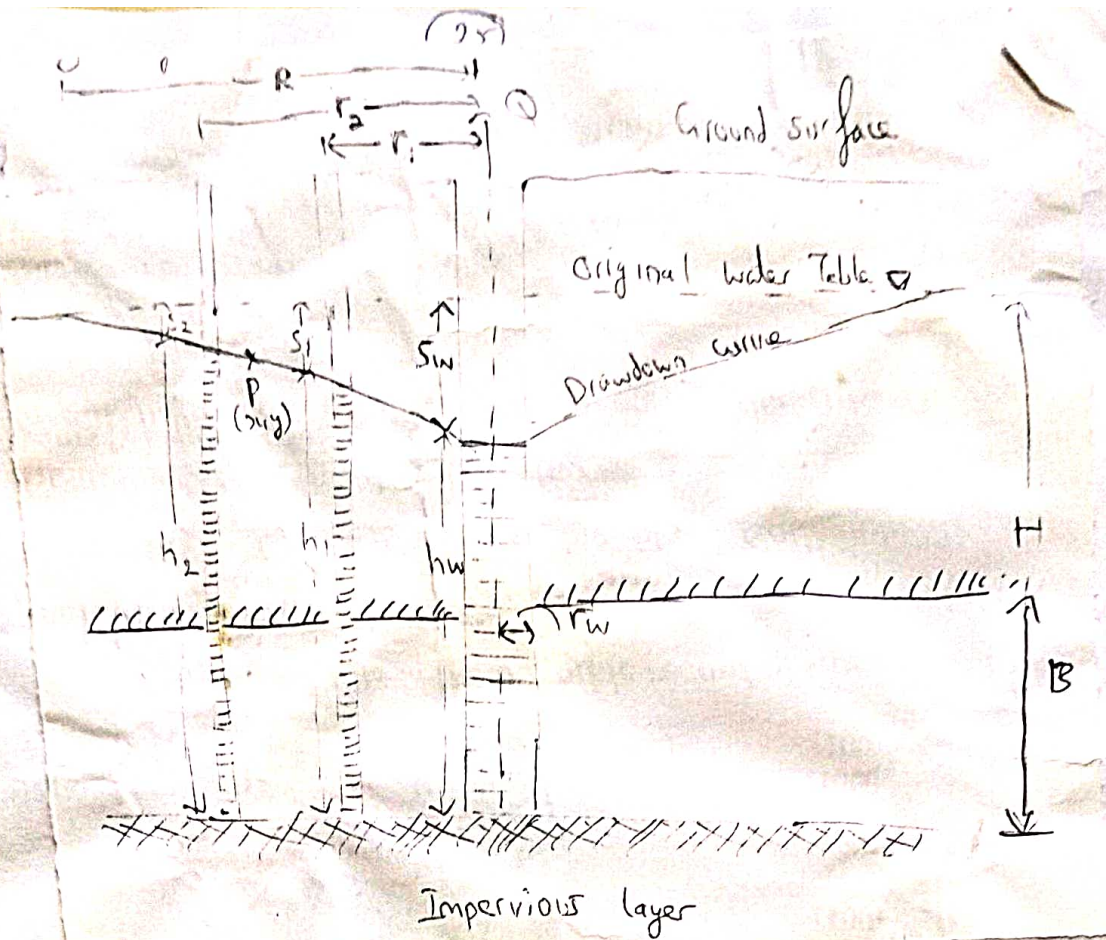 R
r2
r1
Ground surface
Original water Table
S2
S1
Sw
P
(x,y)
Drawdown curve
h2
h1
hw
H
rw
B
Impervious layer